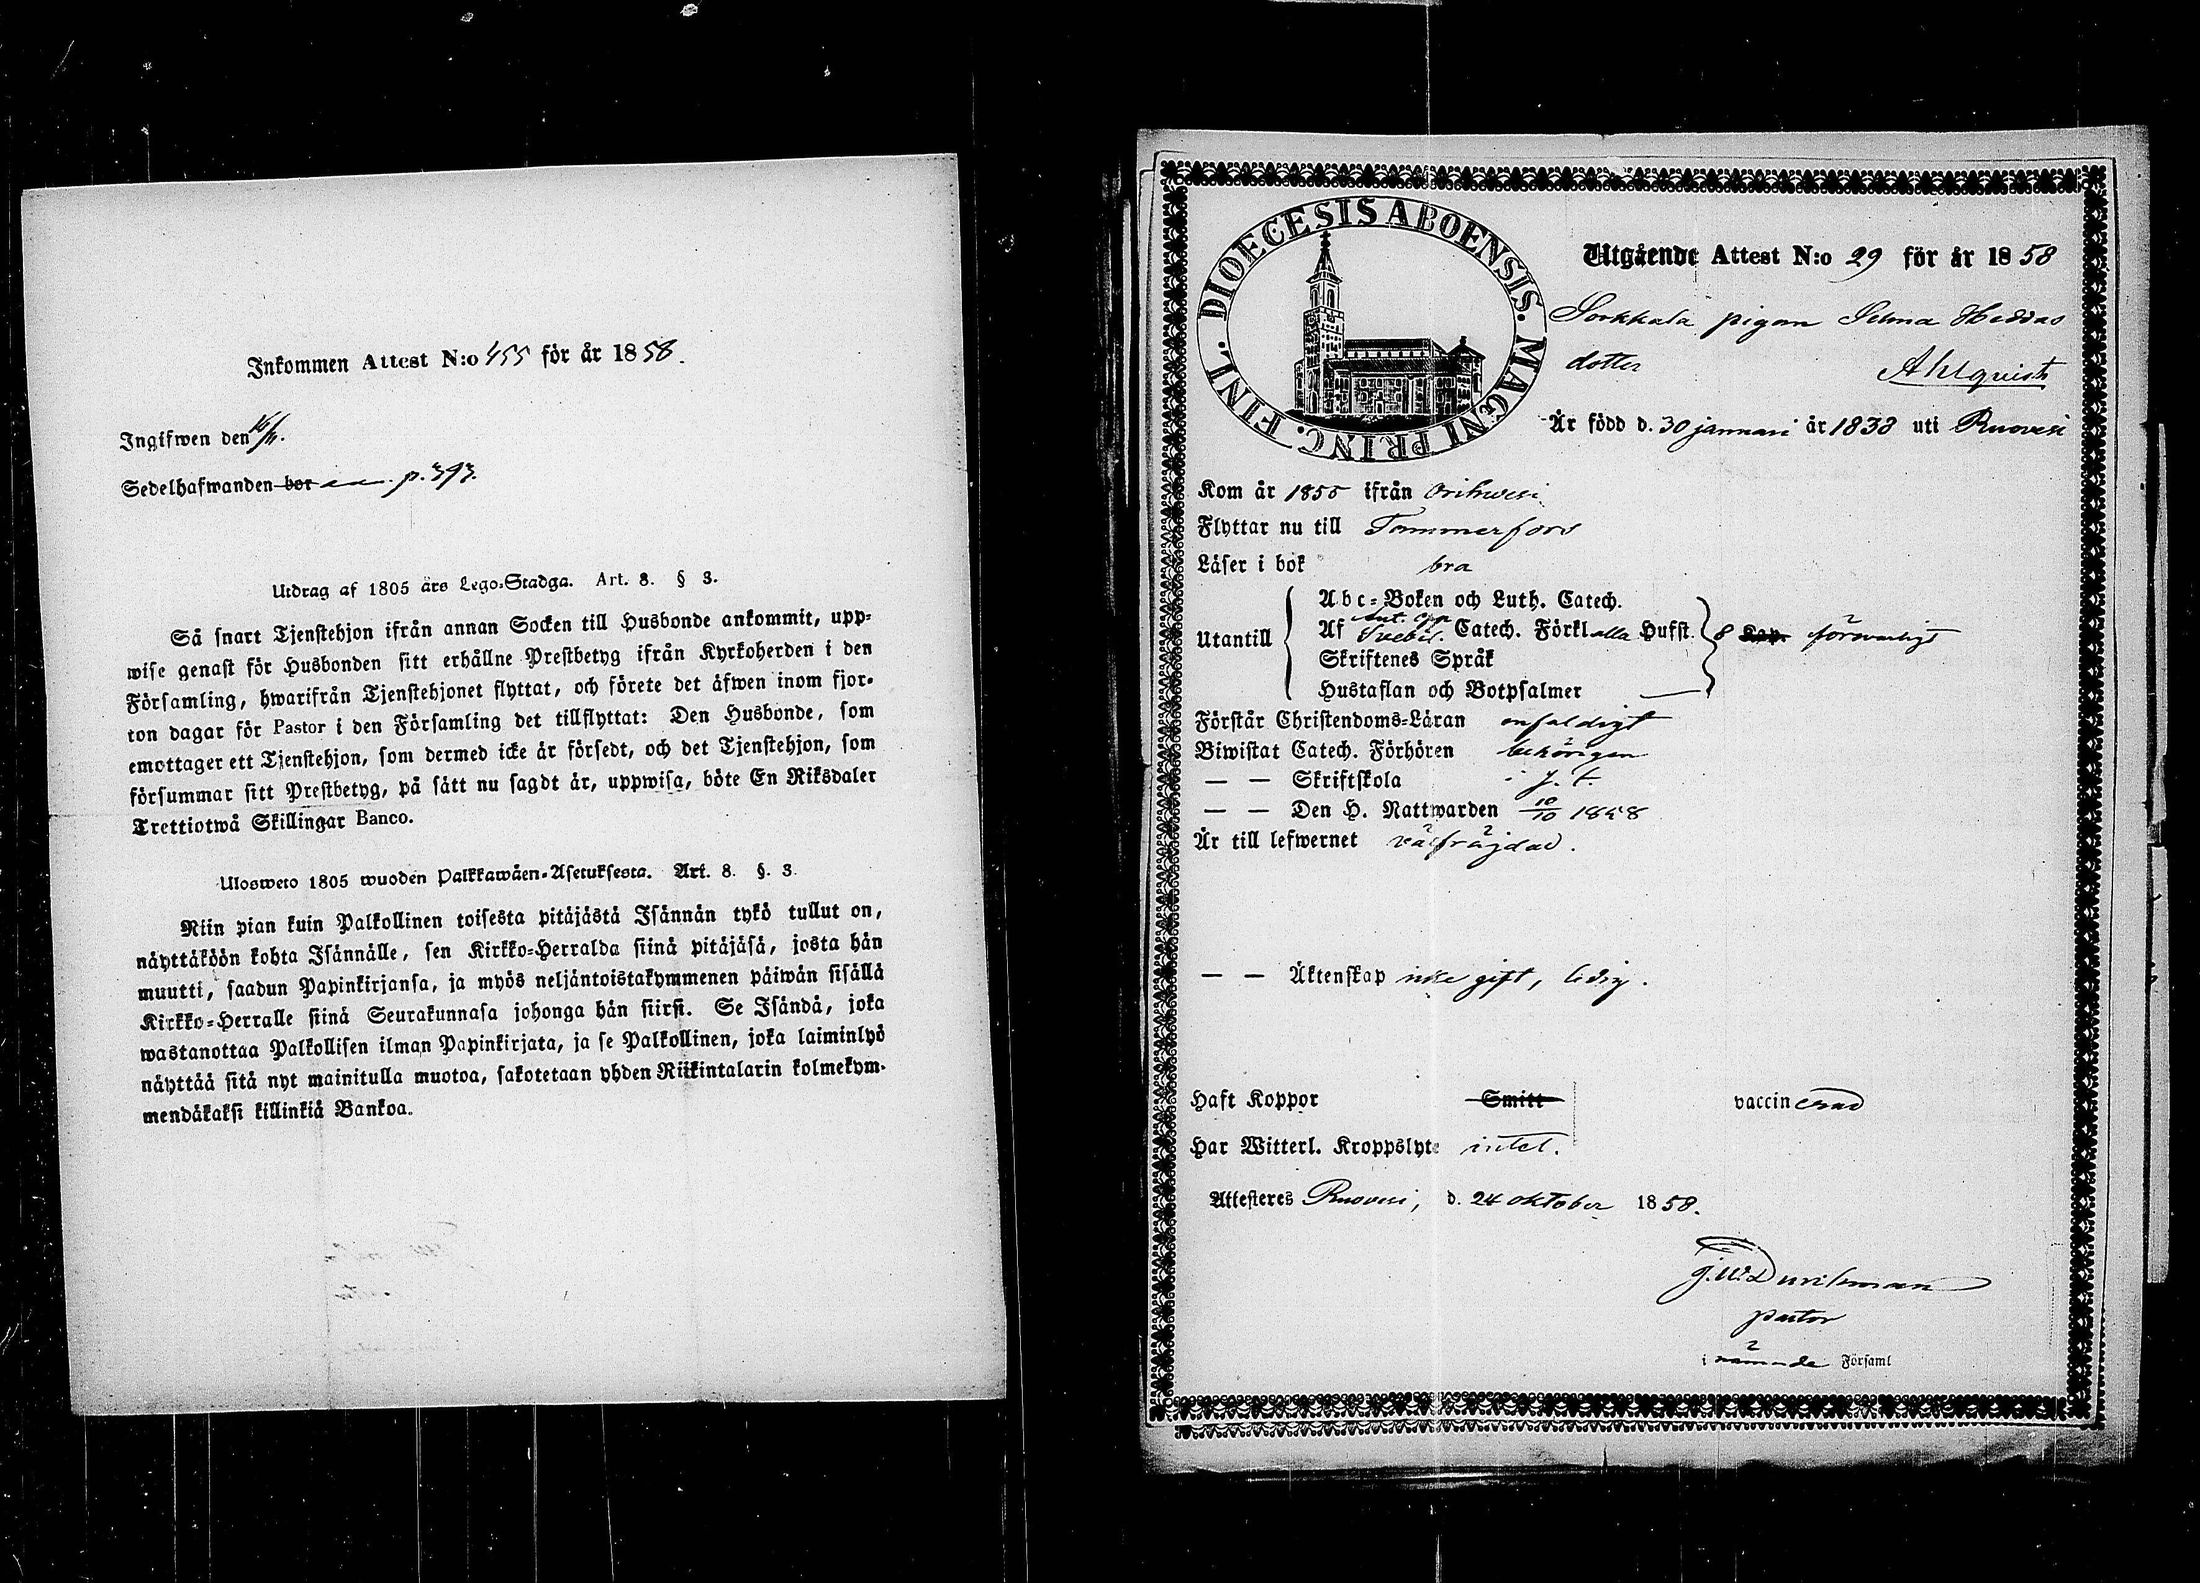 Inkommen Attest N:o 455 för år 1858.
Ingifwen den 16/11.
Sedelhafwanden bor p. 393.
Utdrag af 1805 års Lego-Stadga. Art. 8. § 3.
Så snart Tjenstehjon ifrån annan Socken till Husbonde ankommit, upp-
wise genast för Husbonden sitt erhållne Prestbetyg ifrån Kyrkoherden i den
Församling, hwarifrån Tjenstehjonet flyttat, och förete det äfwen inom fjor-
ton dagar för Pastor i den Församling det tillflyttat: Den Husbonde, som
emottager ett Tjenstehjon, som dermed icke är försedt, och det Tjenstehjon, som
försummar sitt Prestbetyg, på sätt nu sagdt är, uppwisa, böte En Riksdaler
Trettiotwå Skillingar Banco.
Ulosweto 1805 wuoden Palkkawäen-Asetuksesta. Art. 8. §. 3.
Niin pian kuin Palkollinen toisesta pitäjästä Isännän tykö tullut on,
näyttäköön kohta Isännälle, sen Kirkko-Herralda siinä pitäjäsä, josta hän
muutti, saadun Papinkirjansa, ja myös neljäntoistakymmenen päiwän sisällä
Kirkko-Herralle siinä Seurakunnasa johonga hän siirsi. Se Isändä, joka
wastanottaa Palkollisen ilman Papinkirjata, ja se Palkollinen, joka laiminlyö
näyttää sitä nyt mainitulla muotoa, sakotetaan yhden Riikintalarin kolmekym-
mendäkaksi killinkiä Bankoa.
DIOECESIS ABOENSIS. MAGNI PRINC. FINL.
Utgående Attest N:o 29 för år 1858
Sorkkala pigan Selma Heddas
dotter Ahlqvist
Är född d. 30 januari år 1838 uti Ruovesi
Kom år 1855 ifrån Orihwesi
Flyttar nu till Tammerfors
Läser i bok bra
Utantill
Abc-Boken och Luth. Catech.
Af Svebil. Catech. Förkl alla Hufst. 8 Kap. försvarligt
Skriftenes Språk
Hustaflan och Botpsalmer
Förstår Christendoms-Läran enfaldigt
Biwistat Catech. Förhören behörigen
— — Skriftskola i s. t.
— — Den H. Nattwarden 10/10 1858
Är till lefwernet välfräjdad.
— — Äktenskap icke gift, ledig.
Haft Koppor Smitt vaccinerad
Har Witterl. Kroppslyte intet.
Attesteres Ruovesi, d. 24 oktober 1858.
pastor
i nämnde Församl